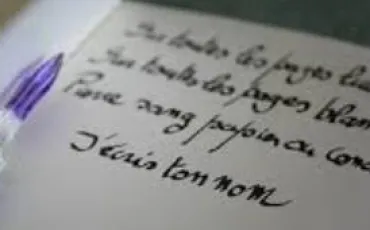 Sur toutes les pages lu
Sur toutes les pages blan
Pierre sang papier ou cend
J'écris ton nom